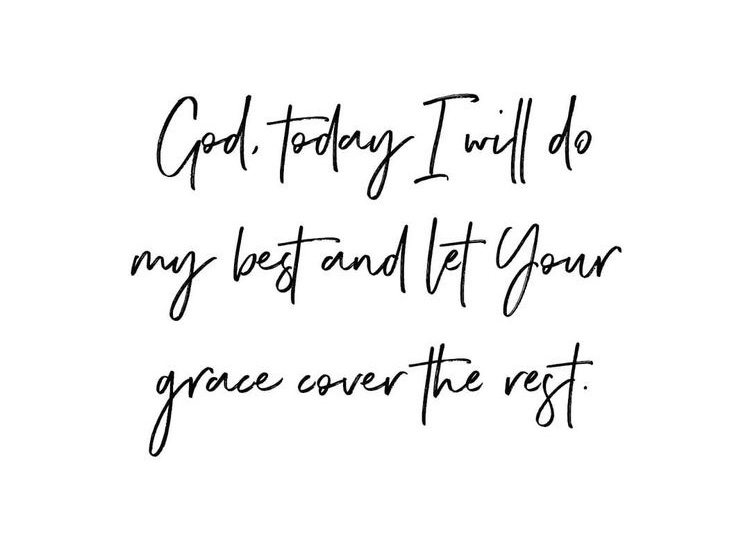 God, today I will do
my best and let Your
grace cover the rest.